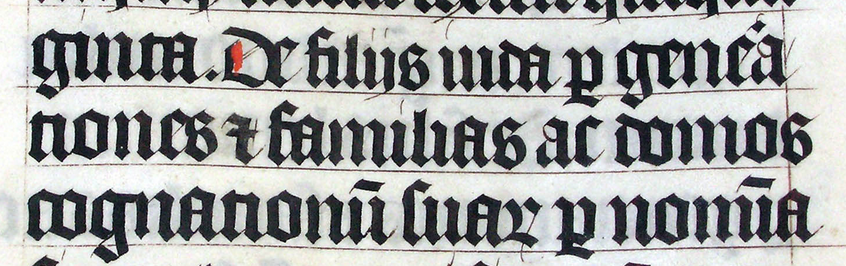 ginta. De filijs iuda ꝑ gen̄ea
tiones ⁊ familias ac domos
cognationū suaꝝ ꝑ nom̄ia